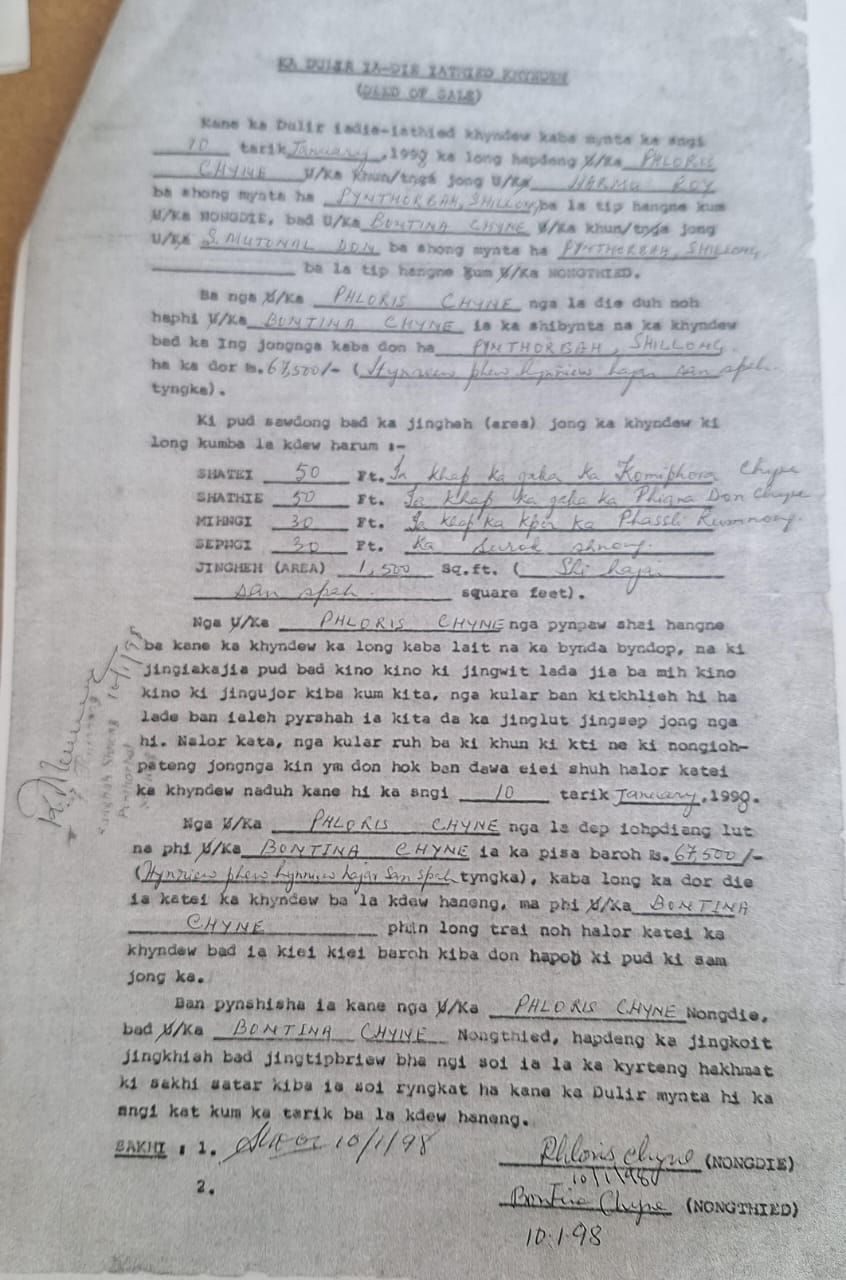 KA DULIR IA-DIE IATHIED KHYNDEW
(DEED OF SALE)
Kane ka Dulir iadie-iathied khyndew kaba mynta ka sngi
10 tarik January, 1998 ka long hapdeng U/Ka PHLORIS
CHYNE U/Ka Khun/tnga jong U/Ka HARMU ROY
ba shong mynta ha PYNTHORBAH, SHILLONG, ba la tip hangne kum
U/Ka NONGDIE, bad U/Ka BONTINA CHYNE U/Ka khun/tnga jong
U/Ka S. MUTONAL DON ba shong mynta ha PYNTHORBAH, SHILLONG,
ba la tip hangne kum U/Ka NONGTHIED.
Ba nga U/Ka PHLORIS CHYNE nga la die duh noh
haphi U/Ka BONTINA CHYNE ia ka shibynta na ka khyndew
bad ka Ing jongnga kaba don ha PYNTHORBAH, SHILLONG.
ha ka dor Rs.67,500/- (Hynriew phew hynniew hajar san spah
tyngka).
Ki pud sawdong bad ka jingheh (area) jong ka khyndew ki
long kumba la kdew harum :-
SHATEI 50 Ft. Ia khap ka jaka ka Komiphora Chyne
SHATHIE 50 Ft. Ia khap ka jaka ka Phigra Don Chyne
MIHNGI 30 Ft. Ia khap ka kper ka Phassli Rumnong.
SEPNGI 30 Ft. Ka surok shnong.
JINGHEH (AREA) 1,500 Sq.ft. ( Shi hajar
san spah square feet).
Nga U/Ka PHLORIS CHYNE nga pynpaw shai hangne
ba kane ka khyndew ka long kaba lait na ka bynda byndop, na ki
jingiakajia pud bad kino kino ki jingwit lada jia ba mih kino
kino ki jingujor kiba kum kita, nga kular ban kitkhlieh hi ha
lade ban ialeh pyrshah ia kita da ka jinglut jingsep jong nga
hi. Nalor kata, nga kular ruh ba ki khun ki kti ne ki nongioh-
pateng jongnga kin ym don hok ban dawa eiei shuh halor katei
ka khyndew naduh kane hi ka sngi 10 tarik January, 1998.
Nga U/Ka PHLORIS CHYNE nga la dep iohpdiang lut
na phi U/Ka BONTINA CHYNE ia ka pisa baroh Rs.67,500/-
(Hynriew phew hynniew hajar san spah tyngka), kaba long ka dor die
ia katei ka khyndew ba la kdew haneng, ma phi U/Ka BONTINA
CHYNE phin long trai noh halor katei ka
khyndew bad ia kiei kiei baroh kiba don hapoh ki pud ki sam
jong ka.
Ban pynshisha ia kane nga U/Ka PHLORIS CHYNE Nongdie,
bad U/Ka BONTINA CHYNE Nongthied, hapdeng ka jingkoit
jingkhiah bad jingtipbriew bha ngi soi ia la ka kyrteng hakhmat
ki sakhi satar kiba ia soi ryngkat ha kane ka Dulir mynta hi ka
sngi kat kum ka tarik ba la kdew haneng.
SAKHI : 1. 10/1/98
Phloris Chyne (NONGDIE)
10/1/1980
2.
Bontina Chyne (NONGTHIED)
10.1.98
10/1/98